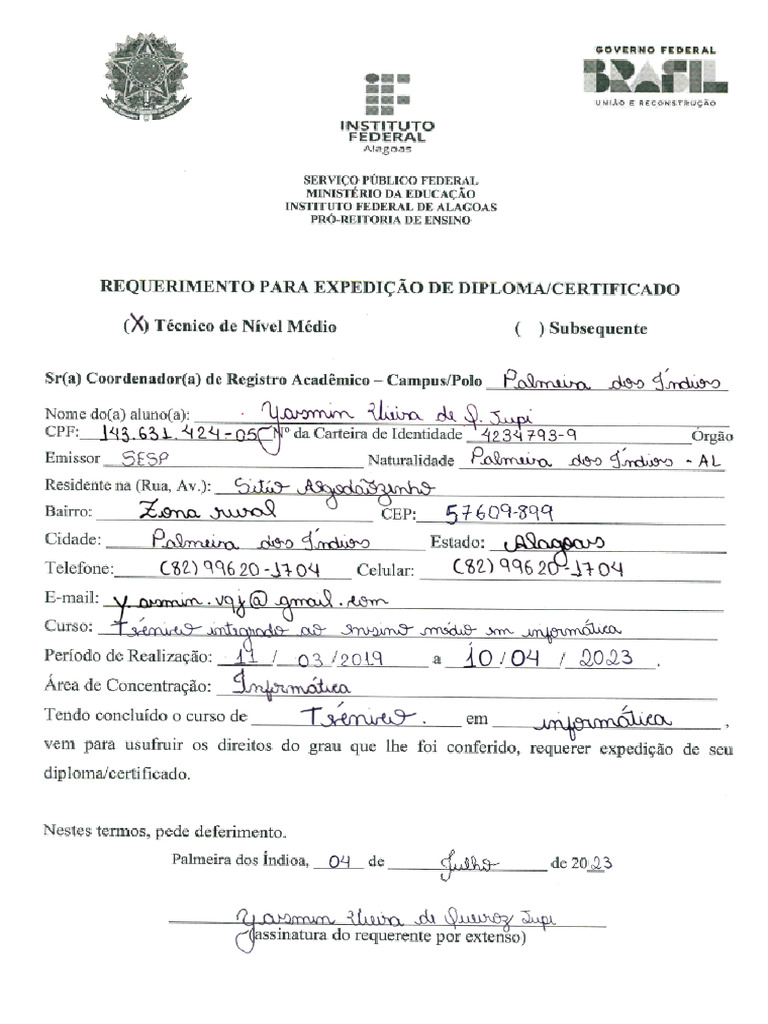 GOVERNO FEDERAL
BRASIL
UNIÃO E RECONSTRUÇÃO
INSTITUTO
FEDERAL
Alagoas
SERVIÇO PÚBLICO FEDERAL
MINISTÉRIO DA EDUCAÇÃO
INSTITUTO FEDERAL DE ALAGOAS
PRÓ-REITORIA DE ENSINO
REQUERIMENTO PARA EXPEDIÇÃO DE DIPLOMA/CERTIFICADO
(X) Técnico de Nível Médio ( ) Subsequente
Sr(a) Coordenador(a) de Registro Acadêmico – Campus/Polo Palmeira dos Índios
Nome do(a) aluno(a): Yasmin Vieira de Q. Jupi
CPF: 143.631.424-05 Nº da Carteira de Identidade 4234793-9 Órgão
Emissor SESP Naturalidade Palmeira dos Índios - AL
Residente na (Rua, Av.): Sítio Algodãozinho
Bairro: Zona rural CEP: 57609-899
Cidade: Palmeira dos Índios Estado: Alagoas
Telefone: (82) 99620-1704 Celular: (82) 99620-1704
E-mail: yasmin.vqj@gmail.com
Curso: Técnico integrado ao ensino médio em informática
Período de Realização: 11 / 03 / 2019 a 10 / 04 / 2023.
Área de Concentração: Informática
Tendo concluído o curso de Técnico. em informática,
vem para usufruir os direitos do grau que lhe foi conferido, requerer expedição de seu
diploma/certificado.
Nestes termos, pede deferimento.
Palmeira dos Índioa, 04 de Julho de 2023
Yasmin Vieira de Queiroz Jupi
(assinatura do requerente por extenso)